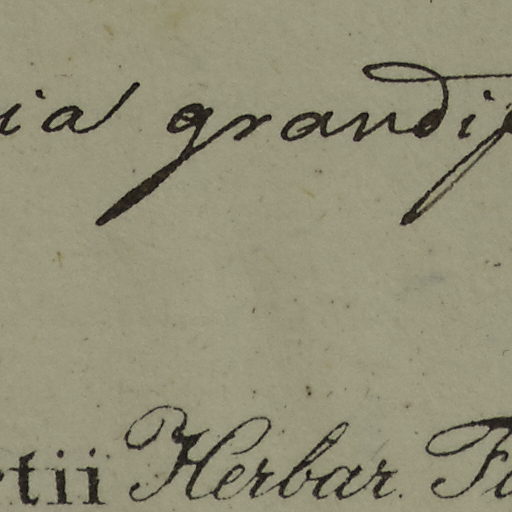 ia grandif
tii Herbar. F